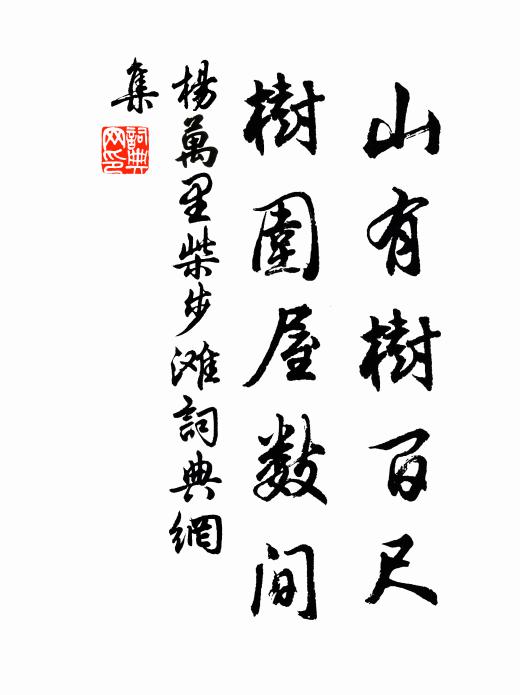 山有樹百尺
樹圍屋数间
楊萬里柴步滩詞典網
集
詞典网印